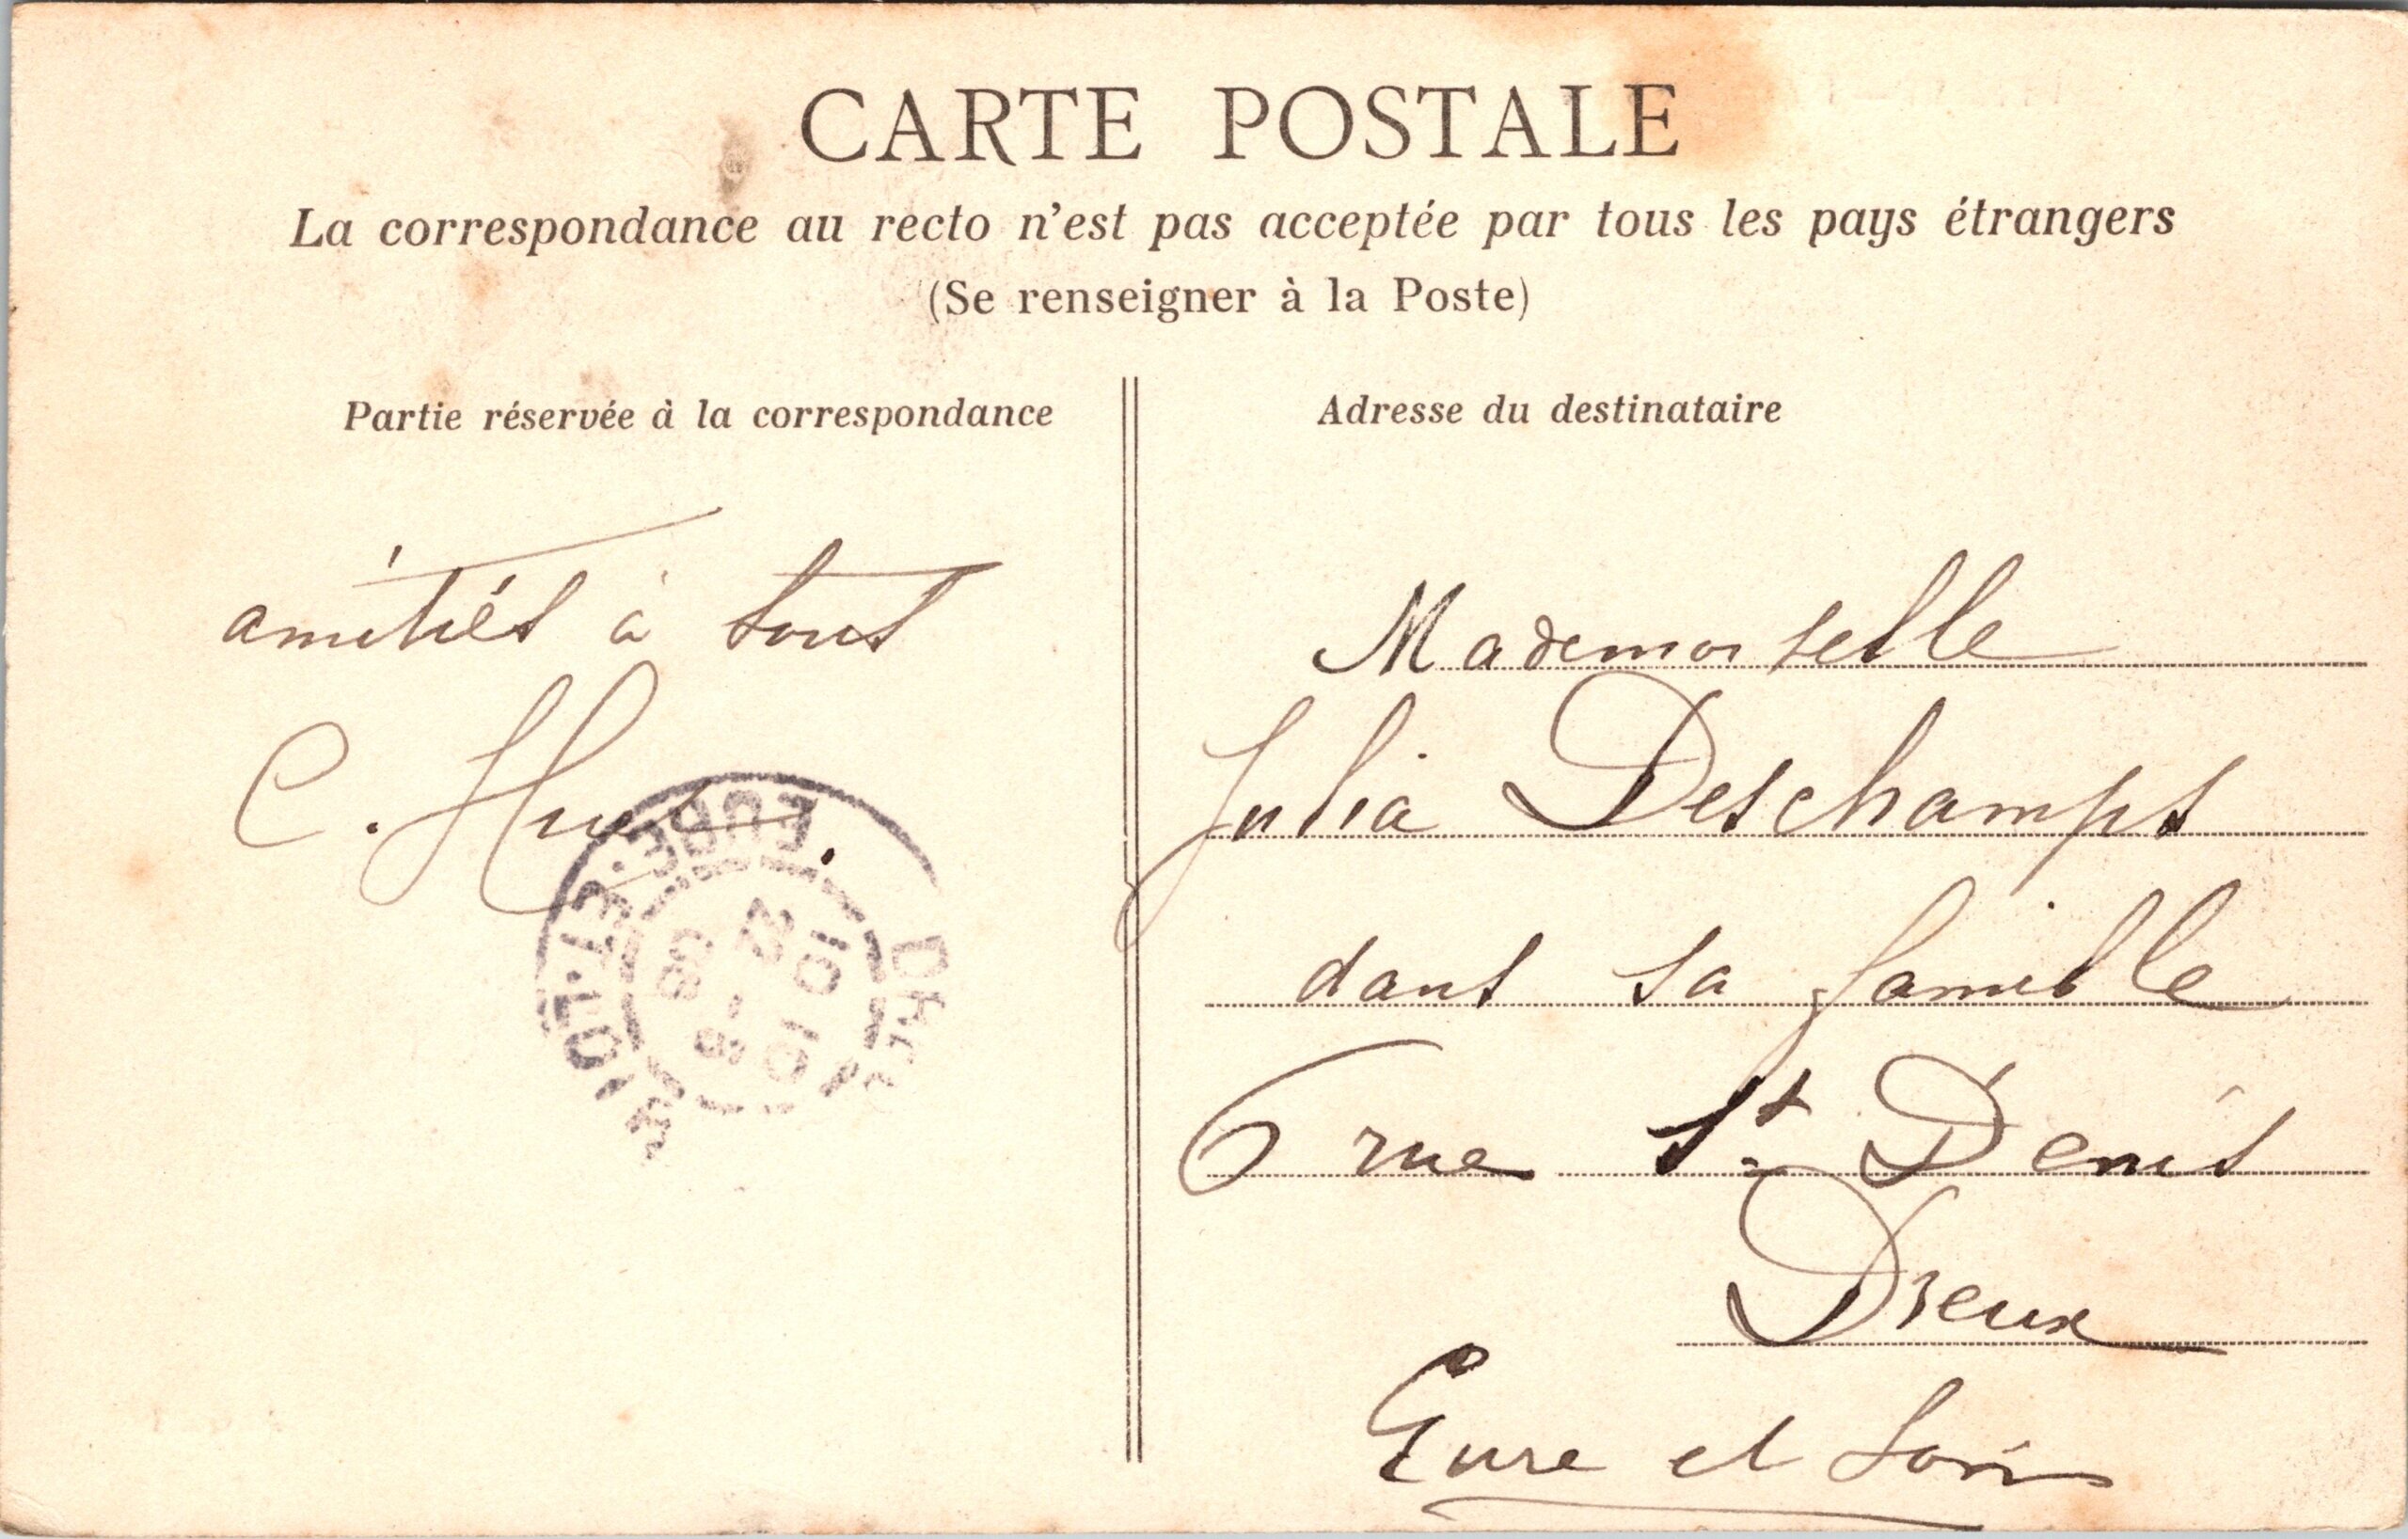 CARTE POSTALE
La correspondance au recto n'est pas acceptée par tous les pays étrangers
(Se renseigner à la Poste)
Partie réservée à la correspondance
Adresse du destinataire
amitiés à tous
C.
EURE-ET-LOIR
10 10
22 - 8
08
Mademoiselle
Julia Deschamps
dans sa famille
6 rue St Denis
Dreux
Eure et Loir